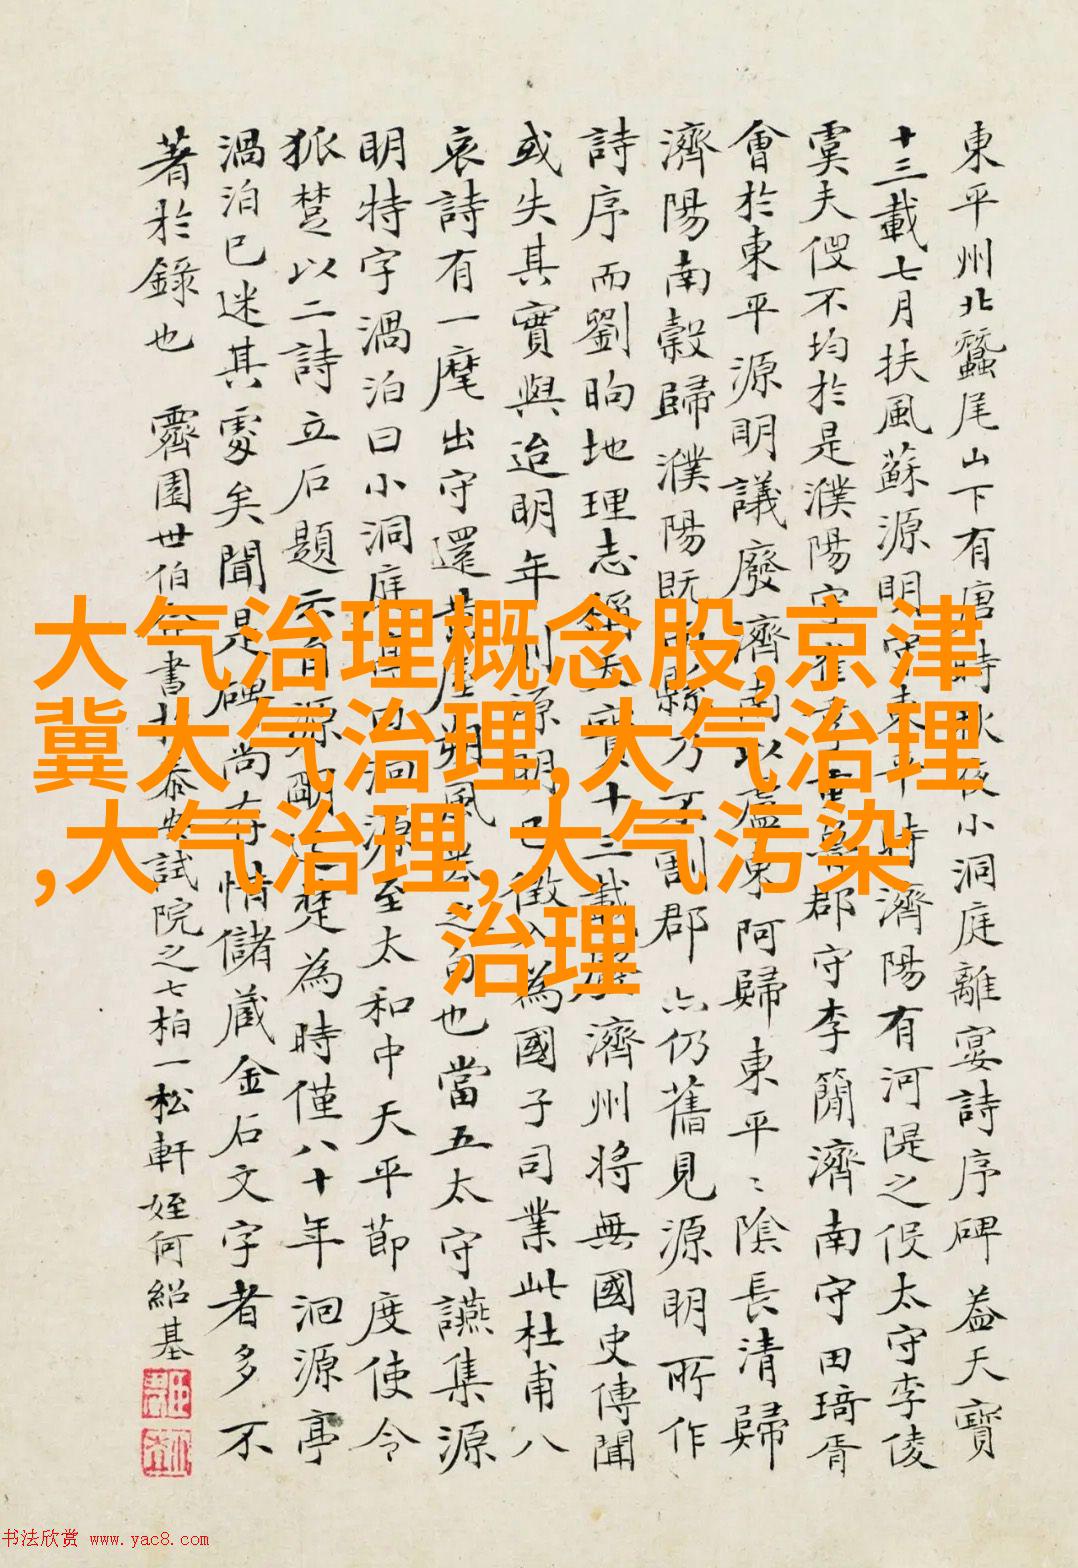 東平州北蠶尾山下有唐時
小洞庭離宴詩序碑 葢天寶
十三載七月扶風蘇源明守東平時濟陽有河隄之役太守李倰
㐮夫役不均於是濮陽守崔
郡守李簡濟南守田琦胥
會於東平源明議廢濟南以
東阿歸東平〻陰長清歸
濟陽南穀歸濮陽既
縣乃不割郡
仍舊見源明所作
詩序而劉昫地理志稱天寶十三載廢濟州將無國史傳聞
或失其實與迨明年
則源明已徵入為國子司業此杜甫八
哀詩有一麾出守還
風
之句也當五太守讌集源
明特字渦泊曰小洞庭
洄源
至太和中天平節度使令
狐楚以二詩立石題云
源
楚為時僅八十年洄源亭
渦泊已迷其處矣聞是碑尚存惜儲蔵金石文字者多不
著於錄也 霽園世伯
書於泰安試院之七柏一松軒 姪何紹基
大气治理概念股,京津
冀大气治理,大气治理
,大气治理,大气污染
治理
书法欣赏 www.yac8.com